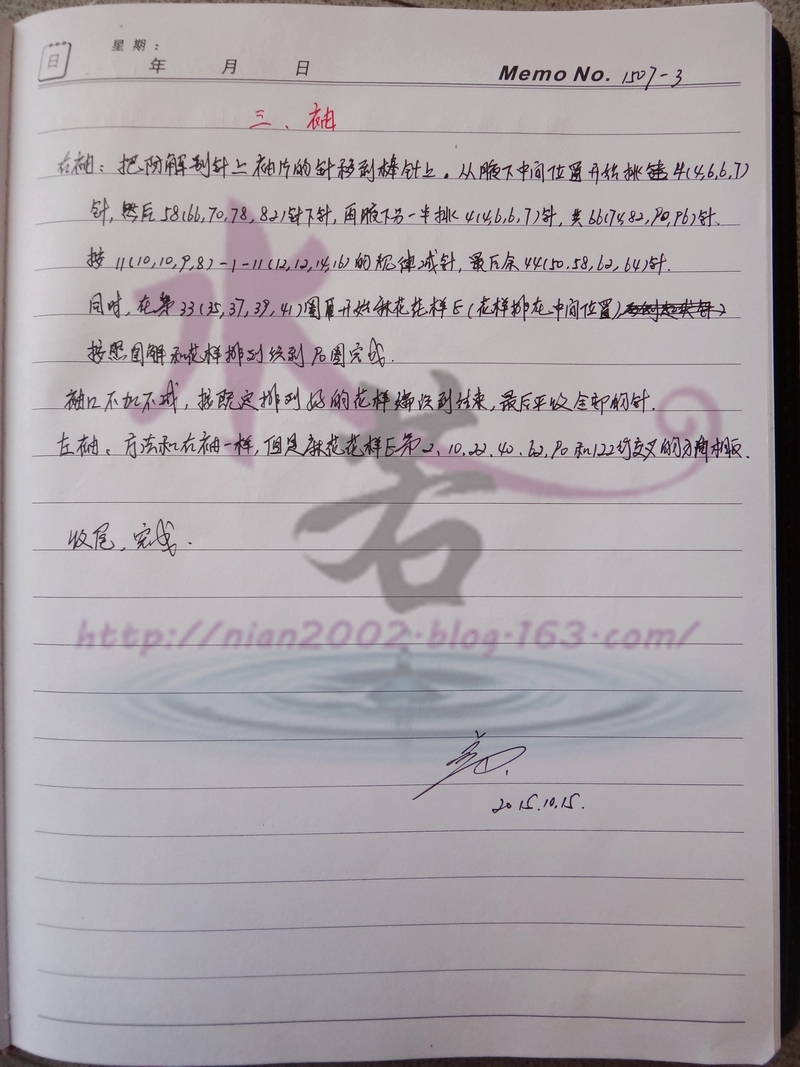 日
星 期 :
年 月 日
Memo No. 1507-3
三、袖
右袖：把防解别针上袖片的针移到棒针上。从腋下中间位置开始挑 4(4,6,6,7)
针，然后58(66,70,78,82)针下针，再腋下另一半挑4(4,6,6,7)针，共66(74,82,90,96)针.
按11(10,10,9,8)-1-11(12,12,14,16)的规律减针，最后余44(50,58,62,64)针.
同时，在第33(35,37,39,41)圈 开始麻花花样E(花样排在中间位置)
按照图解和花样排列织到 圈完成.
袖口不加不减，按既定排列好的花样编织到结束，最后平收全部的针.
左袖：方法和右袖一样，但是麻花花样E第2、10、22、40、62、90和122行交叉的方向相反.
收尾，完成.
水若
http://nian2002.blog.163.com/
2015.10.15.